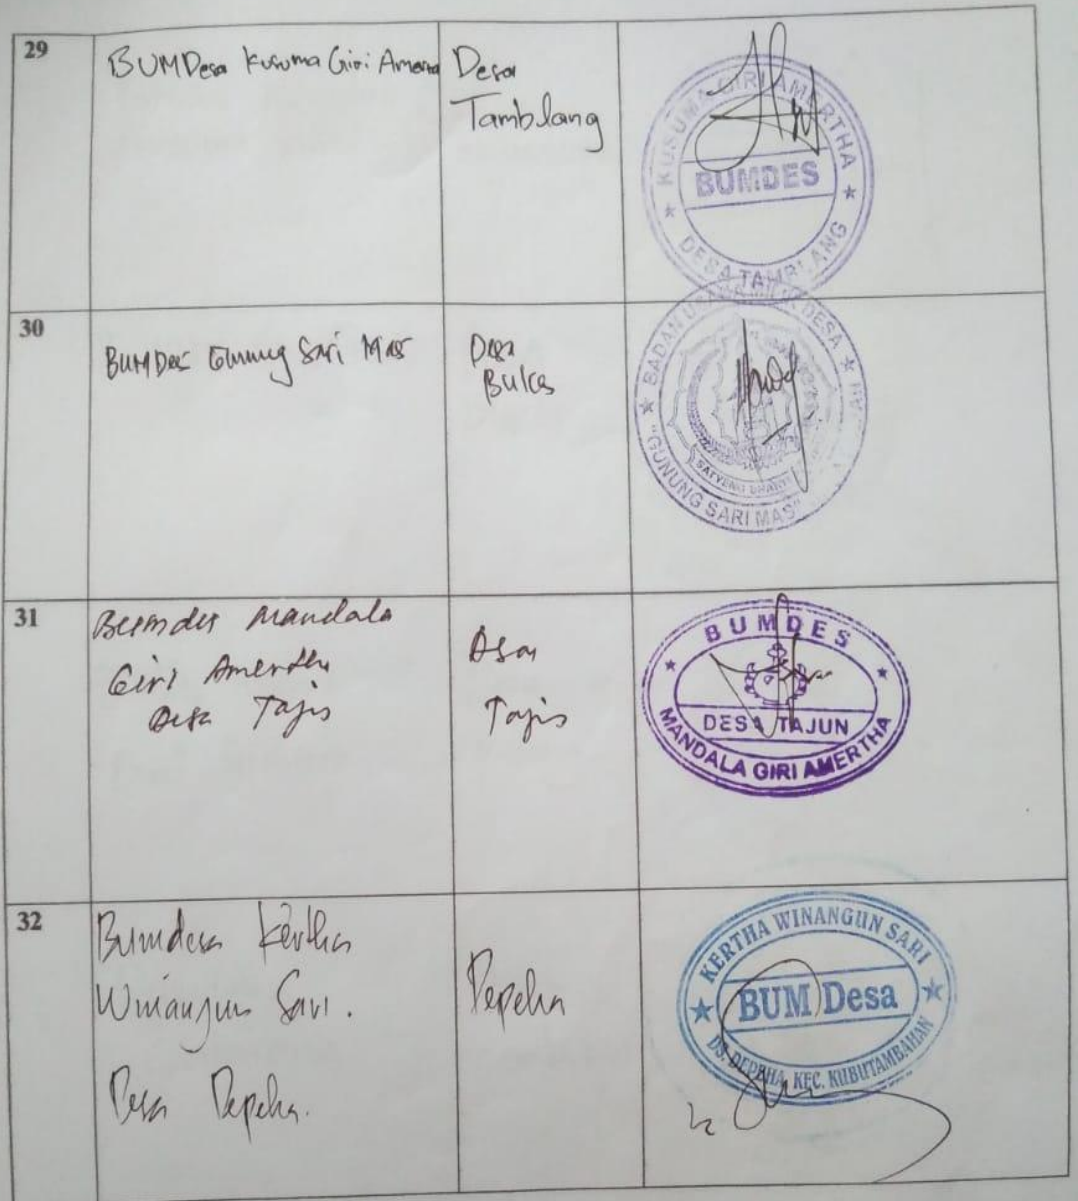 29
BUMDesa Kusuma Giri Amerta
Desa
Tamblang
KUSUMA GIRI AMERTHA
BUMDES
DESA TAMBLANG
30
BUMDes Gunung Sari Mas
Desa
BADAN USAHA MILIK DESA
"GUNUNG SARI MAS"
31
Bumdes Mandala
Giri Amertha
Desa
Desa
BUMDES
DESA TAJUN
MANDALA GIRI AMERTHA
32
Bumdesa Kertha
Winangun Sari.
Desa Depeha.
Depeha
KERTHA WINANGUN SARI
BUM Desa
DS. DEPEHA, KEC. KUBUTAMBAHAN